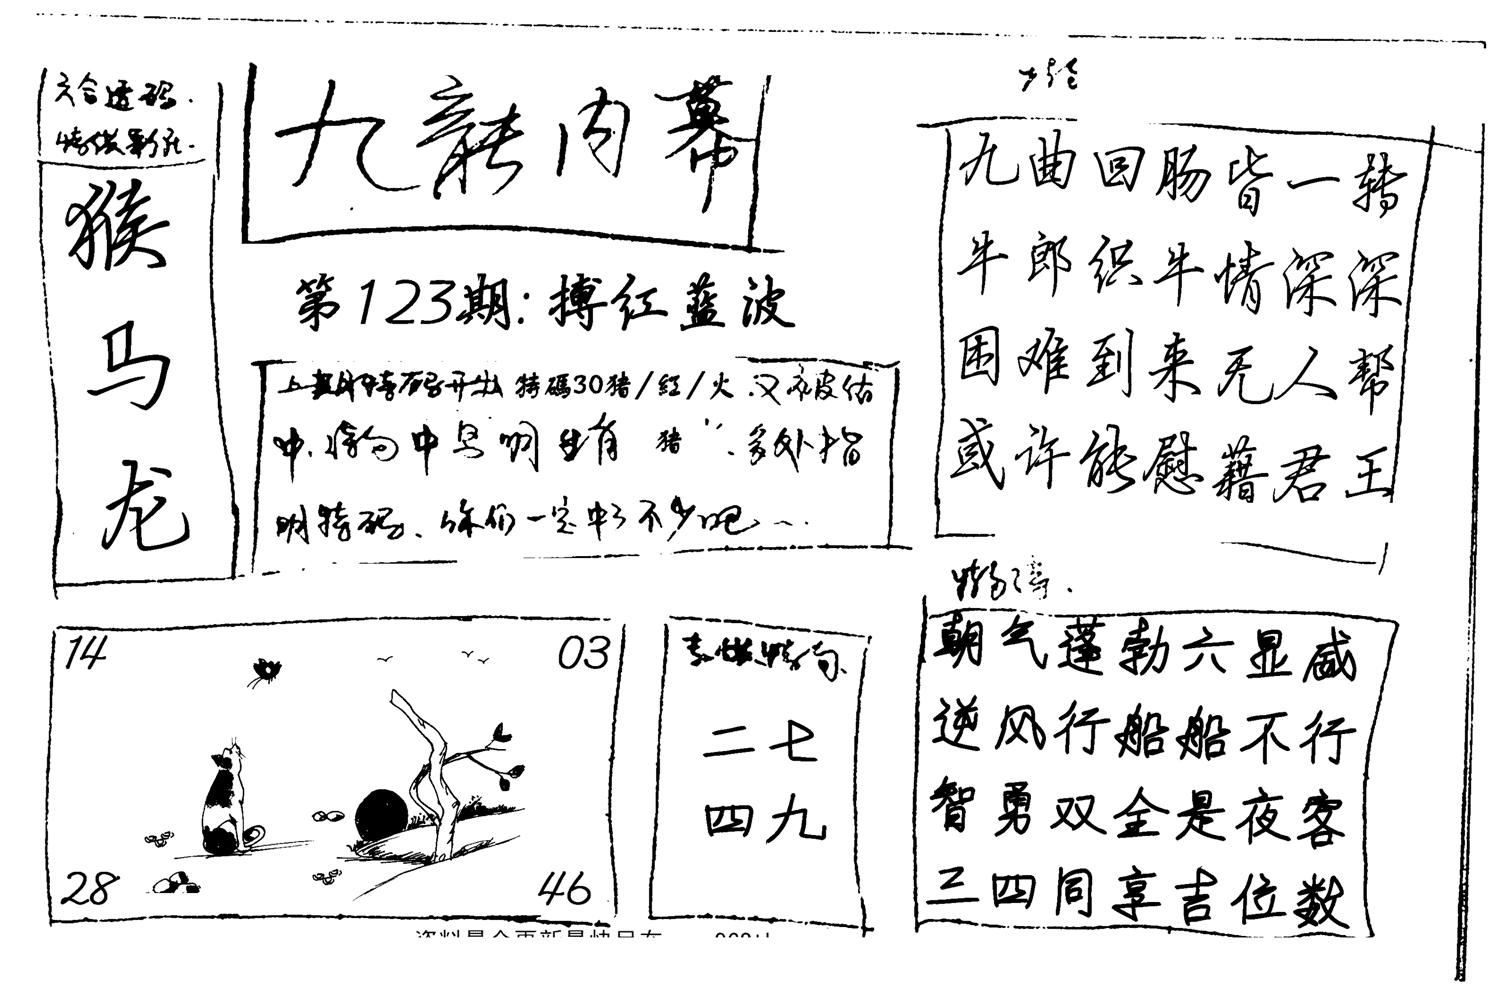 六合透码.
九龍内幕
猴
马
龙
第123期:搏红蓝波
上期特码开出 特碼30猪/紅/火 又被估
中.特句中 明生肖 猪 .多处指
明特码.你们一定中了不少吧...
九曲回肠皆一转
牛郎织牛情深深
困难到来无人帮
或许能慰藉君王
朝气蓬勃六显威
逆风行船船不行
智勇双全是夜客
三四同享吉位数
14
03
28
46
二七
四九